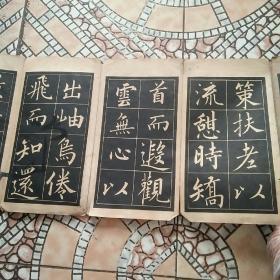 策扶老以
流憩時矯
首而遐觀
雲無心以
出岫鳥倦
飛而知還